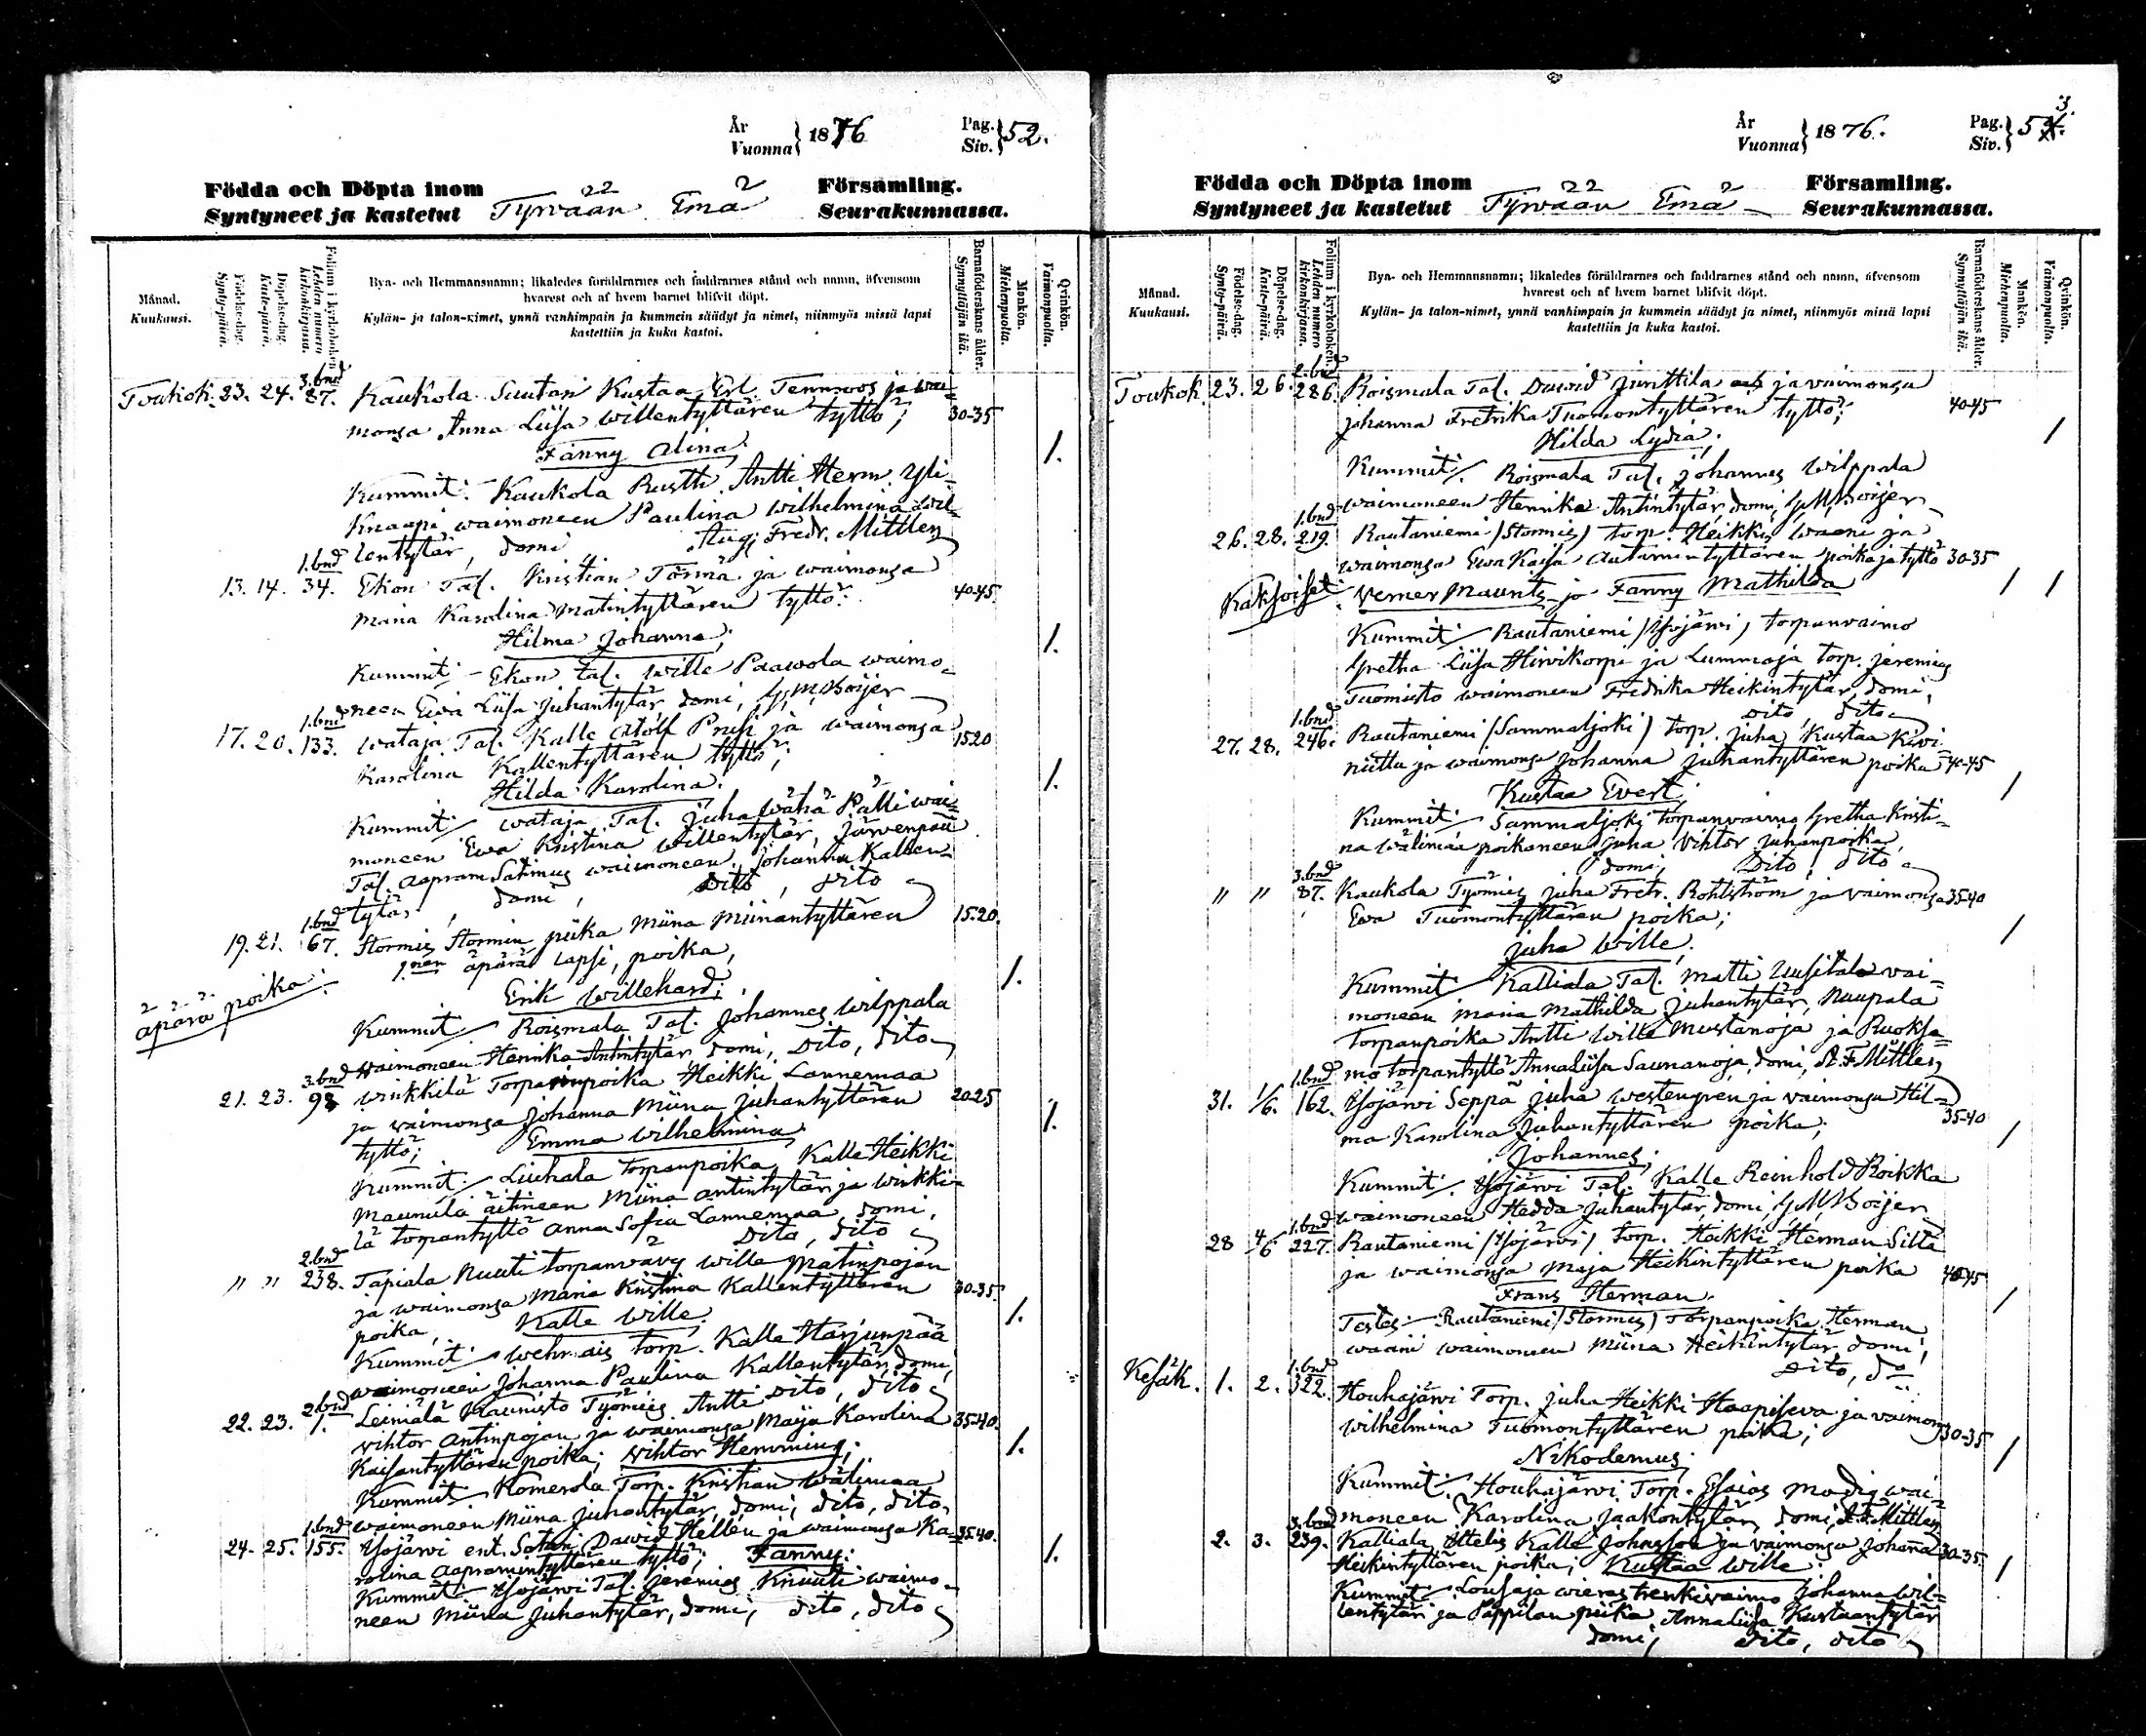 År
Vuonna } 1876
Pag.
Siv. } 52.
Födda och Döpta inom Församling.
Syntyneet ja kastetut Tyrvään Emä Seurakunnassa.
Månad.
Kuukausi.
Födelse-dag.
Synty-päivä.
Döpelse-dag.
Kaste-päivä.
Folium i kyrkoboken.
Lehden numero
kirkonkirjassa.
Bya- och Hemmansnamn; likaledes föräldrarnes och faddrarnes stånd och namn, äfvensom
hvarest och af hvem barnet blifvit döpt.
Kylän- ja talon-nimet, ynnä vanhimpain ja kummein säädyt ja nimet, niinmyös missä lapsi
kastettiin ja kuka kastoi.
Barnaföderskans ålder.
Synnyttäjän ikä.
Mankön.
Miehenpuolta.
Qvinkön.
Vaimonpuolta.
3. bnd
Toukok. 23. 24. 87. Kaukola Suutari Kustaa Erl. Tennroos ja wai-
monsa Anna Liisa Willentyttären tyttö; 30-35
Fanny Alina. 1.
Kummit: Kaukola Rustti. Antti Herm. Yli-
Knaapi waimoneen Paulina Wilhelmina Wil-
lentytär, domi Aug. Fredr. Mittlen
1. bnd
13. 14. 34. Ekon Tal. Kristian Törmä ja waimonsa
Maria Karolina Matintyttären tyttö: 40-45.
Hilma Johanna; 1.
Kummit: Ekon tal. Wille Paawola waimo-
neen Ewa Liisa Juhantytär domi, G.M. Boijer
1. bnd
17. 20. 133. Wataja Tal. Kalle Atolf Prusi ja waimonsa 15-20
Karolina Kallentyttären tyttö;
Hilda Karolina. 1.
Kummit: Wataja Tal. Juha Wähä Pälli wai-
moneen Ewa Kristina Willentytär, Järvenpää
Tal. Aapram Satimus waimoneen Johanna Kallen-
tytär, domi, Dito, Dito
1. bnd
19. 21. 67. Stormis Stormin piika Miina Miinantyttären 15-20.
1.nen äpärä lapsi, poika,
äpärä poika: Erik Willehard; 1.
Kummit: Roismala Tal. Johannes Wilppala
Waimoneen Henrika Antintytär domi, Dito, Dito
3. bnd
21. 23. 98 Winkkilä Torpanpoika Heikki Lannemaa
ja waimonsa Johanna Miina Juhantyttären 20-25
tyttö; Emma Wilhelmina; 1.
Kummit: Liuhala torpanpoika Kalle Heikki
Maunula äitineen Miina Antintytär ja Winkki-
lä torpantyttö Anna Sofia Lannemaa domi,
Dito, Dito
2. bnd
" " 238. Tapiala Nuuti torpanvävy Wille Matinpojan
ja waimonsa Maria Kristina Kallentyttären 30-35.
poika, Kalle Wille. 1.
Kummit: Wehmais torp. Kalle Harjunpää
waimoneen Johanna Paulina Kallentytär, domi,
Dito, Dito
2. bnd
22. 23. 1. Leiniälä Kaunisto Työmies Antti
Wihtor Antinpojan ja waimonsa Maija Karolina 35-40.
Kaisantyttären poika; Wihtor Hemming; 1.
Kummit: Komerola Torp. Kristian Wälimaa
waimoneen Miina Juhantytär, domi; Dito, Dito.
1. bnd
24. 25. 155. Yöjärvi ent. Sotani Dawid Hellén ja waimonsa Ka- 35-40.
rolina Aapramintyttären tyttö; Fanny; 1.
Kummit: Yöjärvi Tal. Jeremias Knuuti waimo-
neen Miina Juhantytär, domi; Dito, Dito
År
Vuonna } 1876.
3.
Pag.
Siv. } 54.
Födda och Döpta inom Församling.
Syntyneet ja kastetut Tyrvään Emä Seurakunnassa.
Månad.
Kuukausi.
Födelse-dag.
Synty-päivä.
Döpelse-dag.
Kaste-päivä.
Folium i kyrkoboken.
Lehden numero
kirkonkirjassa.
Bya- och Hemmansnamn; likaledes föräldrarnes och faddrarnes stånd och namn, äfvensom
hvarest och af hvem barnet blifvit döpt.
Kylän- ja talon-nimet, ynnä vanhimpain ja kummein säädyt ja nimet, niinmyös missä lapsi
kastettiin ja kuka kastoi.
Barnaföderskans ålder.
Synnyttäjän ikä.
Mankön.
Miehenpuolta.
Qvinkön.
Vaimonpuolta.
2. bnd
Toukok. 23. 26. 286. Roismala Tal. Dawid Junttila ja vaimonsa
Johanna Fredrika Tuomontyttären tyttö; 40-45
Hilda Lydia; 1
Kummit: Roismala Tal. Johannes Wilppala
waimoneen Henrika Antintytär, domi, G.M. Boijer
1. bnd
26. 28. 219. Rautaniemi (Stormis) torp. Heikki Waani ja
waimonsa Ewa Kaisa Antintyttären poika ja tyttö 30-35
Kaksoiset: Verner Maurits ja Fanny Mathilda 1 1
Kummit: Rautaniemi (Yöjärvi) torpanvaimo
Gretha Liisa Hirvikorpi ja Lummaja torp. Jeremias
Tuomisto waimoneen Fredrika Heikintytär, domi,
Dito, Dito
1. bnd
27. 28. 246. Rautaniemi (Sammaljoki) torp. Juha Kustaa Kivi-
niittu ja waimonsa Johanna Juhantyttären poika 40-45
Kustaa Evert; 1
Kummit: Sammaljoki torpanvaimo Gretha Kristi-
na Wälimää poikaneen Juha Vihtor Juhanpoika,
domi; Dito, Dito
3. bnd
" " 87. Kaukola Työmies Juha Fredr. Bohlström ja vaimonsa 35-40
Ewa Tuomontyttären poika;
Juha Wille; 1
Kummit: Kalliala Tal. Matti Uusitalo vai-
moneen Maria Mathilda Juhantytär, Nuupala
Torpanpoika Antti Wille Mustanoja ja Ruoksa-
mo torpantyttö Anna Liisa Saunanoja, domi, A.F. Mittlen
1. bnd
31. 1/6. 162. Yöjärvi Seppä Juha Westengren ja vaimonsa Hil-
ma Karolina Juhantyttären poika; 35-40
Johannes; 1
Kummit: Yöjärvi Tal. Kalle Reinhold Roikka
waimoneen Hedda Juhantytär, domi, G.M. Boijer
1. bnd
28 4/6 227. Rautaniemi (Yöjärvi) torp. Heikki Herman Silta
ja waimonsa Maja Heikintyttären poika 40-45
Frans Herman. 1
Testes: Rautaniemi (Stormis) Torpanpoika Herman
Waani waimoneen Miina Heikintytär domi;
Dito, Do
1. bnd
Kesäk. 1. 2. 322. Houhajärvi Torp. Juha Heikki Haapiseva ja vaimons
Wilhelmina Tuomontyttären poika; 30-35
Nikodemus; 1
Kummit: Houhajärvi Torp. Esaias Modig wai-
moneen Karolina Jaakontytär, domi, A.F. Mittlen
3. bnd
2. 3. 239. Kalliala Itselis Kalle Johnsson ja vaimonsa Johanna 30-35.
Heikintyttären poika; Kustaa Wille; 1
Kummit: Lousaja wieras trenkivaimo Johanna Wil-
lentytär ja Pappilan piika Anna Liisa Kustaantytär
domi; Dito, Dito